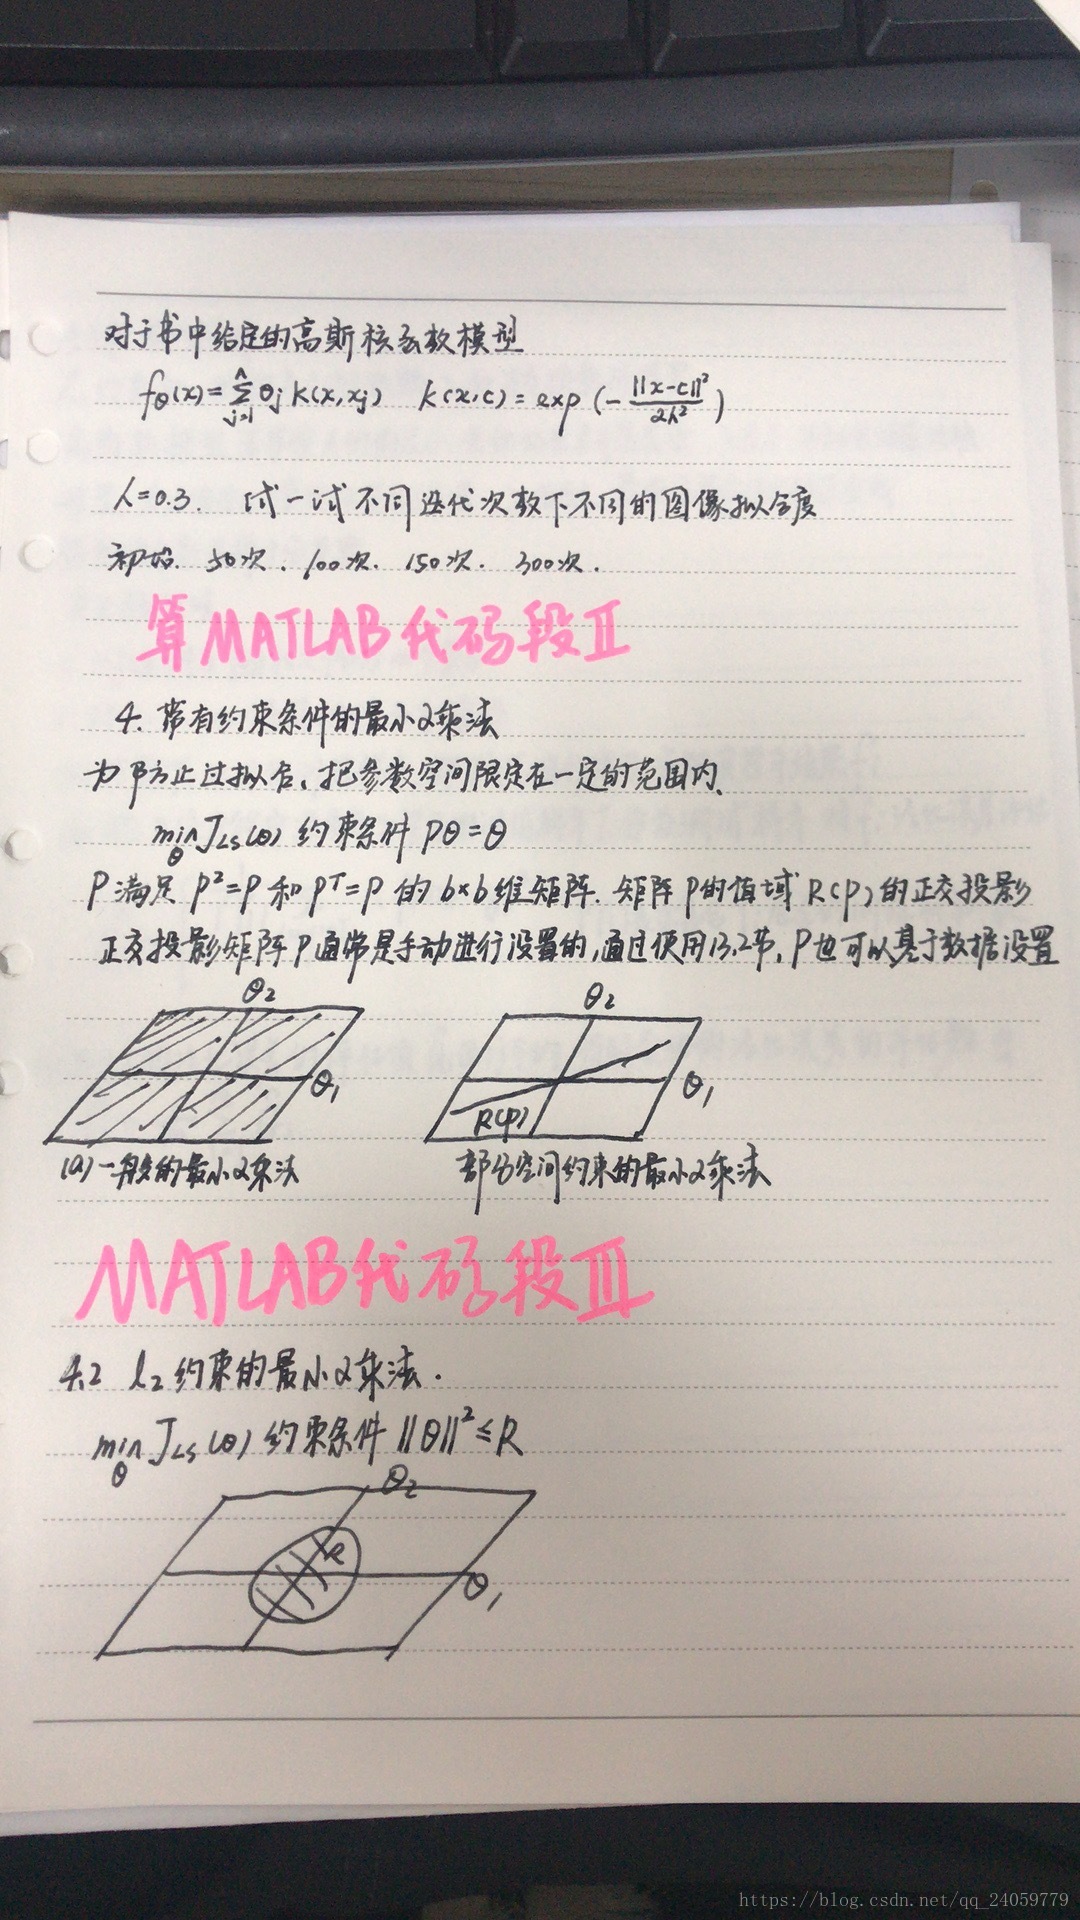 对于书中给定的高斯核函数模型
fθ(x)=∑ⁿⱼ₌₁ θj K(x,xj)  K(x,c)=exp(-||x-c||²/2h²)
h=0.3. 试一试不同迭代次数下不同的图像拟合度
初始. 50次. 100次. 150次. 300次.
算MATLAB代码段Ⅱ
4. 带有约束条件的最小2乘法
为防止过拟合, 把参数空间限定在一定的范围内.
min θ JLS(θ) 约束条件 Pθ=θ
P满足 P²=P 和 Pᵀ=P 的 b×b维矩阵. 矩阵P的值域 R(P)的正交投影
正交投影矩阵P通常是手动进行设置的,通过使用13.2节,P也可以基于数据设置
θ2
θ1
(a)一般的最小2乘法
θ2
θ1
R(P)
部分空间约束的最小2乘法
MATLAB代码段Ⅲ
4.2 l2约束的最小2乘法.
min θ JLS(θ) 约束条件 ||θ||²≤R
θ2
R
θ1
https://blog.csdn.net/qq_24059779